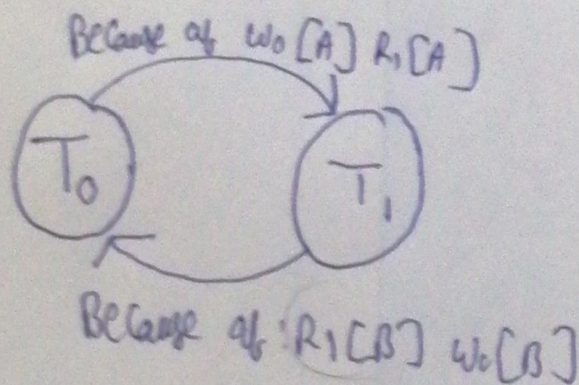 Because of W₀[A] R₁[A]
T₀
T₁
Because of : R₁[B] W₀[B]